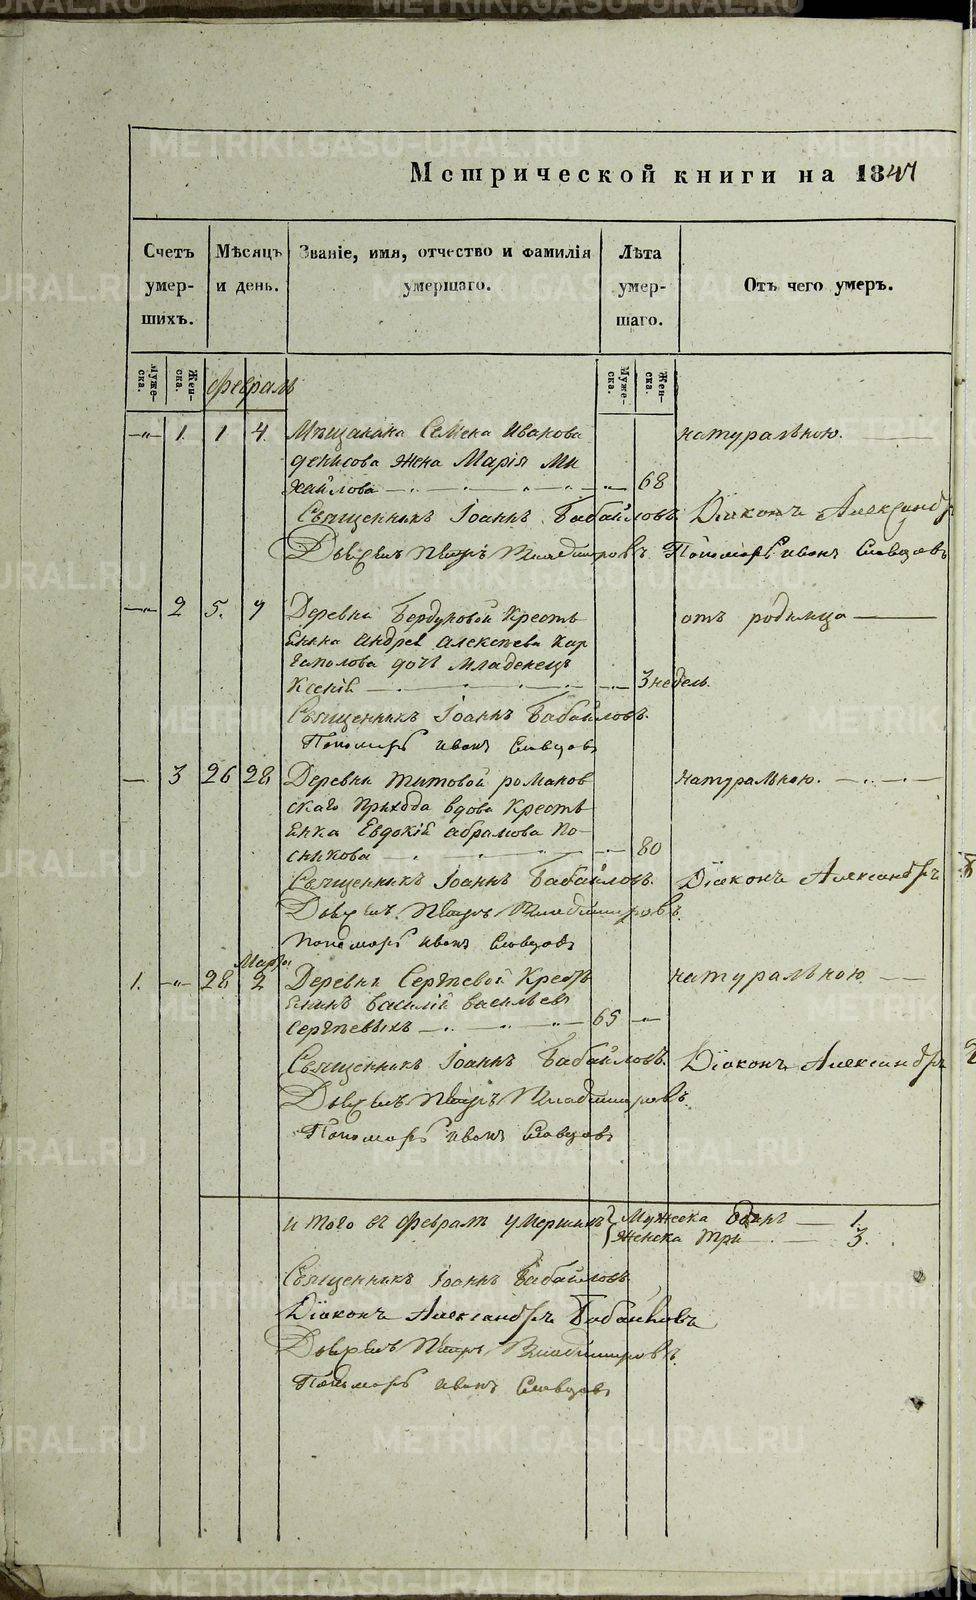 METRIKI.GASO-URAL.RU
Метрической книги на 1847
Счетъ умер-шихъ.
Мѣсяцъ и день.
Званіе, имя, отчество и фамилія умершаго.
Лѣта умер-шаго.
Отъ чего умеръ.
Муже-ска.
Жен-ска.
Февраль
Муже-ска.
Жен-ска.
—„— 1. 1 4. Мѣщанина Семена Иванова натуральною.
денисова жена Марія Ми
хайлова —„— 68
Священникъ Іоаннъ Бабайловъ Діаконъ Александръ
Петръ Владимировъ. Пономарь иванъ Словцовъ
—„— 2 5. 7 Деревни Бердюковой Кресть отъ родимца
янина андрея алексѣева Кар
гаполова дочь младенецъ
Ксенія —„— 3 недель.
Священникъ Іоаннъ Бабайловъ.
Пономарь иванъ Словцовъ
— 3 26 28 Деревни титовой романов натуральною.
скаго прихода вдова Кресть
янка Евдокія абрамова по-
сникова —„— 80
Священникъ Іоаннъ Бабайловъ. Діаконъ Александръ
Петръ Владимировъ.
пономарь иванъ Словцовъ
Марта
1. —„— 28 2 Деревни Сергѣевой Кресть натуральною
янинъ василій васильевъ
сергѣевыхъ 65 —„—
Священникъ Іоаннъ Бабайловъ. Діаконъ Александръ
Петръ Владимировъ.
Пономарь иванъ Словцовъ
итого въ февралѣ умершихъ Мужеска одинъ — 1.
женска три — 3.
Священникъ Іоаннъ Бабайловъ
Діаконъ Александръ
Петръ Владимировъ.
Пономарь иванъ Словцовъ